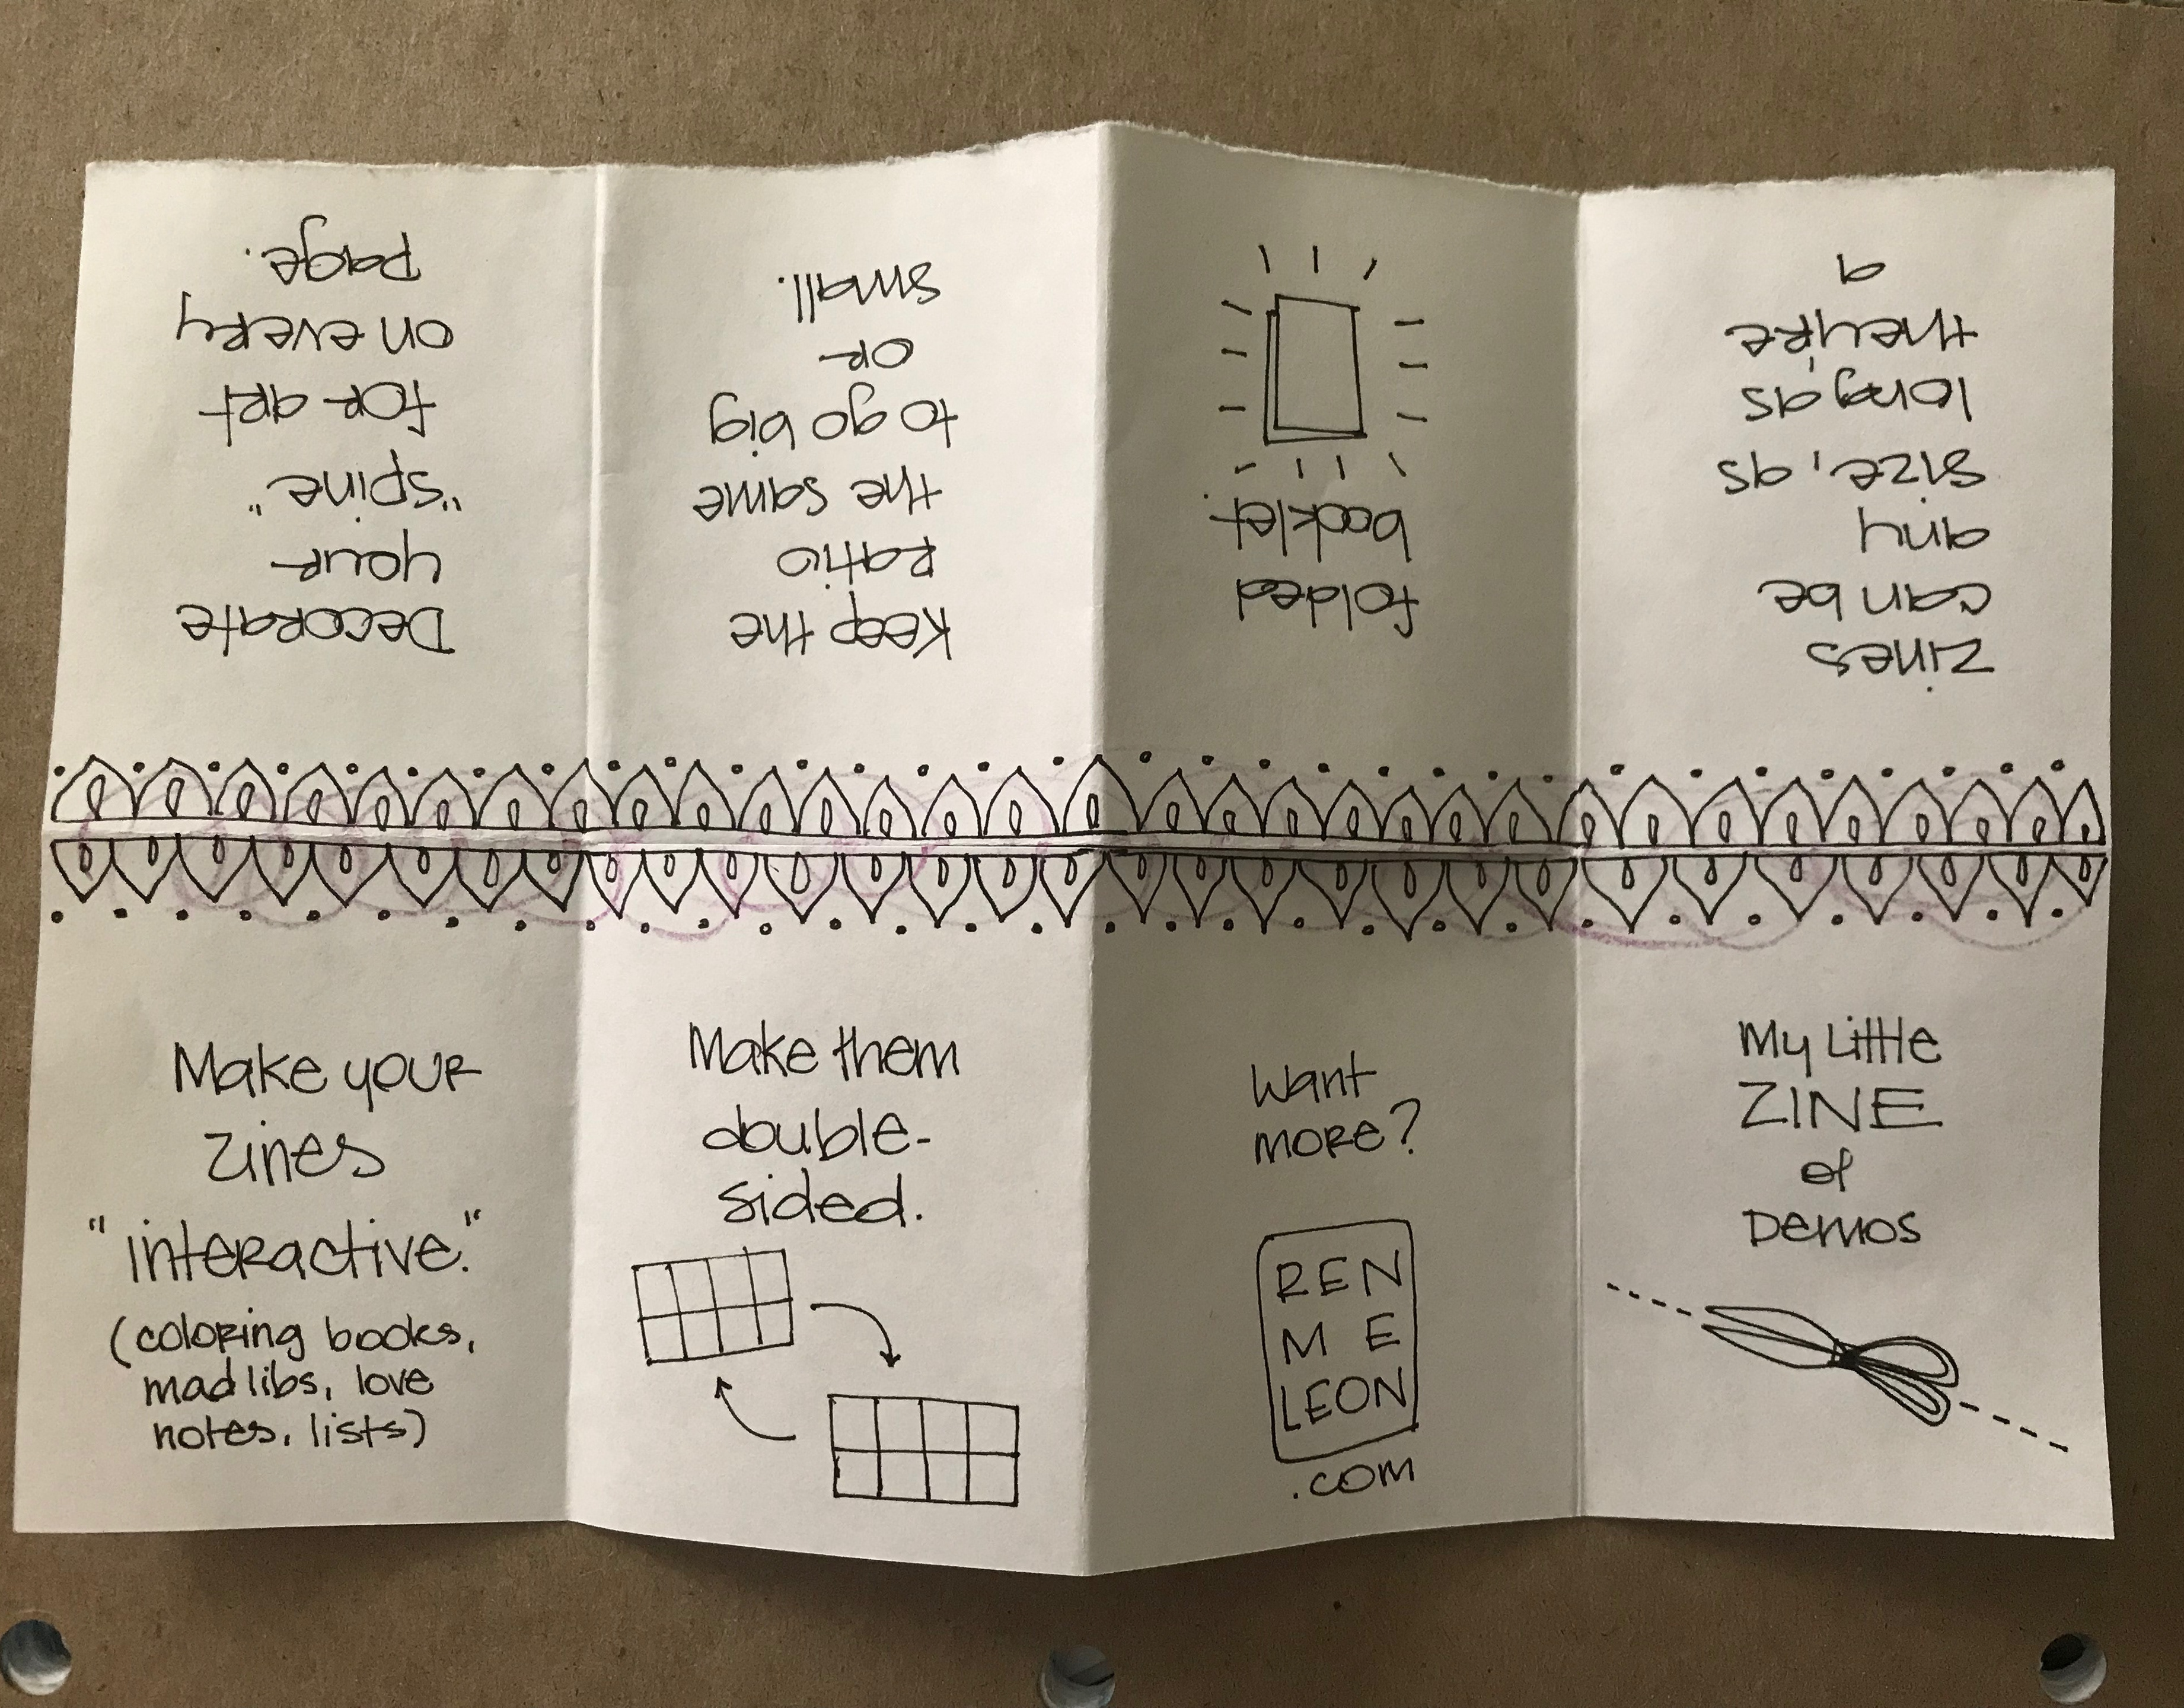 My Little
ZINE
of
Demos
zines
can be
any
size, as
long as
they're
a
folded
booklet.
Keep the
ratio
the same
to go big
or
small.
Decorate
your
"spine"
for art
on every
page.
Make your
zines
"interactive."
(coloring books,
mad libs, love
notes, lists)
Make them
double-
sided.
Want
more?
REN
M E
LEON
.com